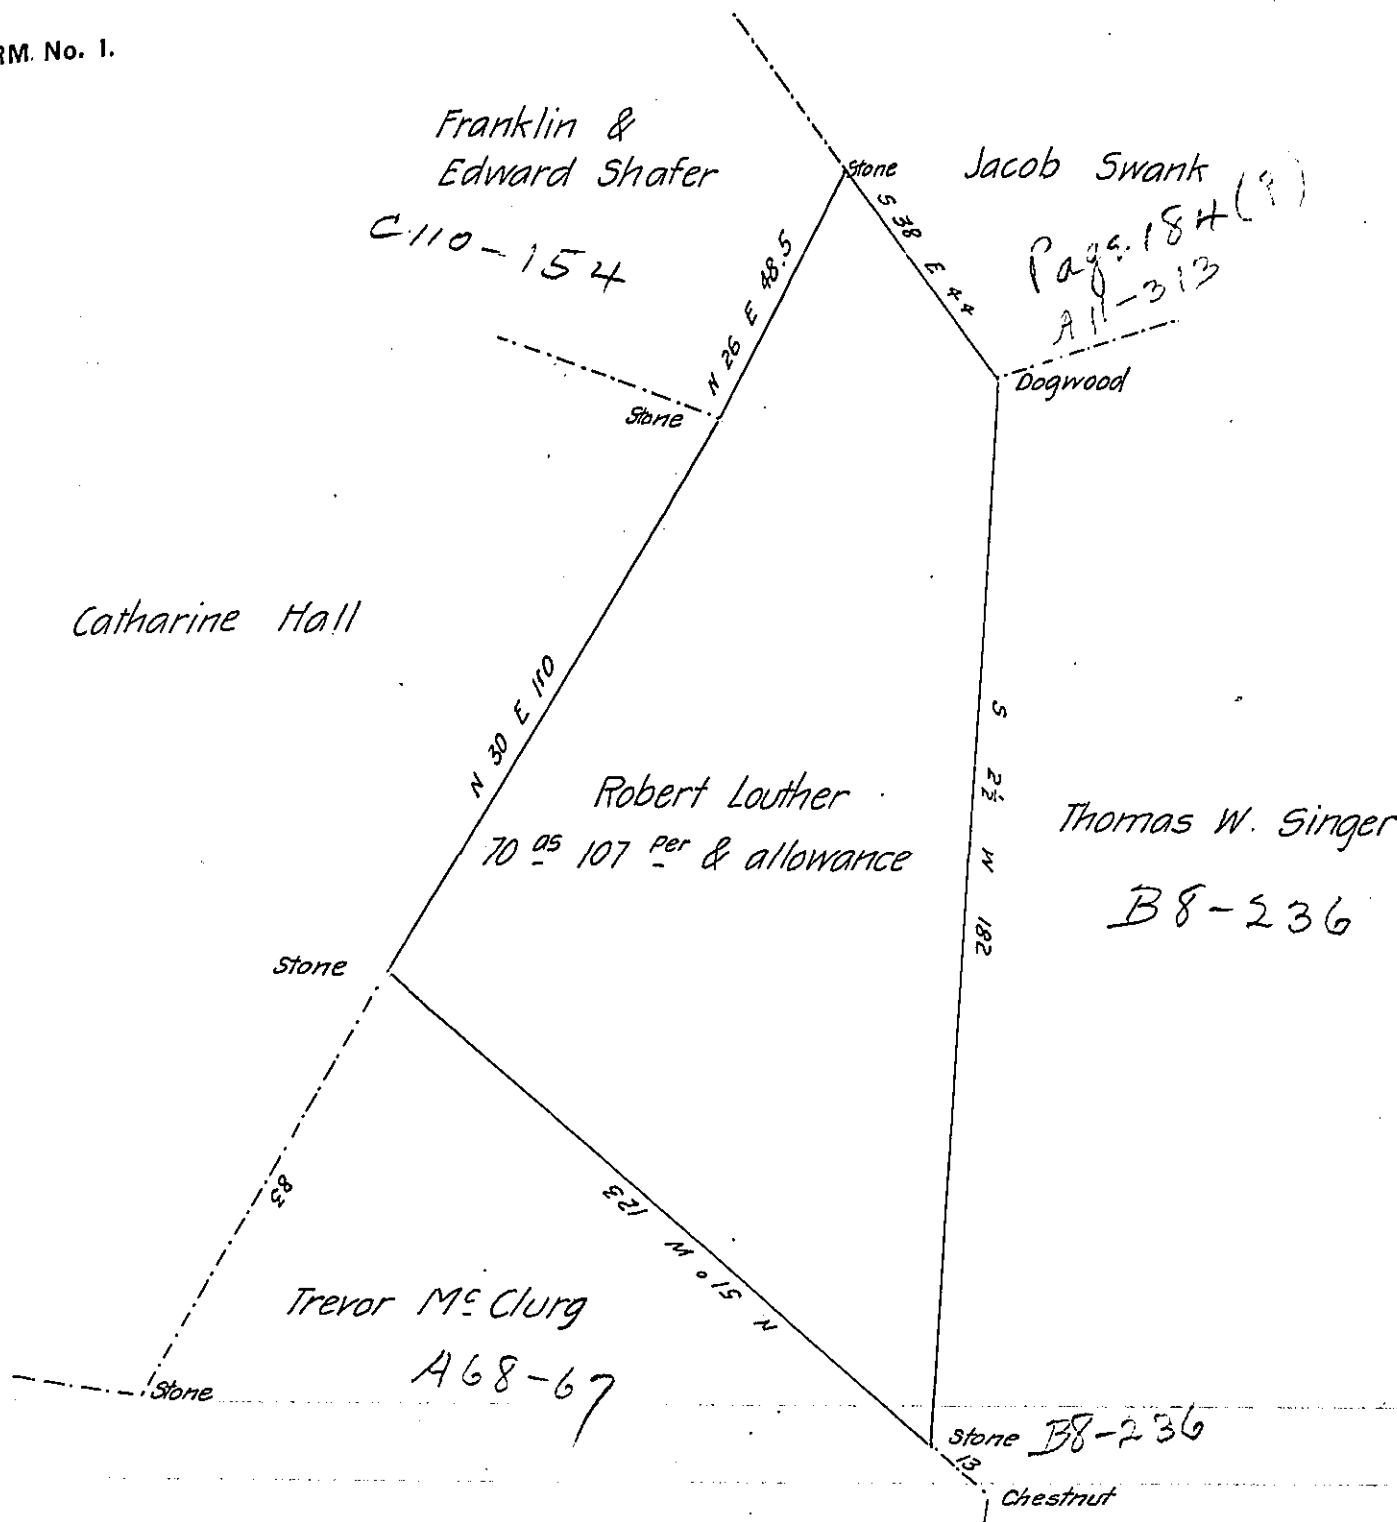 RM. No. 1.
Franklin &
Edward Shafer
C110-154
Stone
Jacob Swank
Page 184 (?)
A11-313
S 38 E 44
N 26 E 48.5
Stone
Dogwood
Catharine Hall
N 30 E 110
S 2½ W 182
Robert Louther
70 as 107 per & allowance
Thomas W. Singer
B8-236
Stone
83
N 51° W 123
Trevor McClurg
A68-67
Stone
Stone B8-236
13
Chestnut